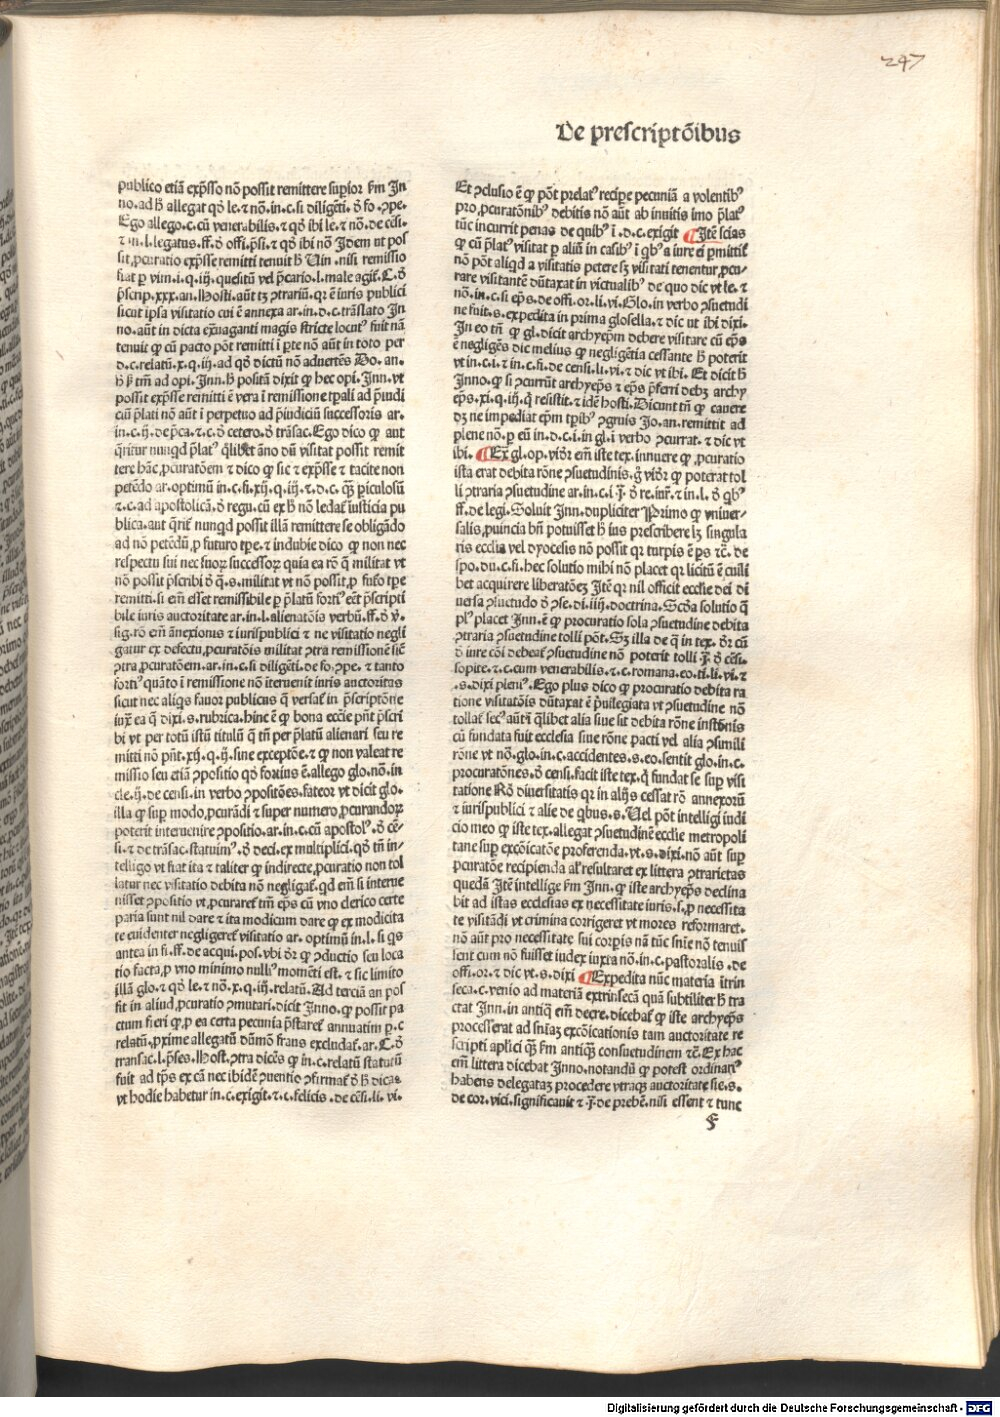 247
De prescriptõibus
publico etiã exp̃sso nõ possit remittere supior ẜm In
no. ad h̾ allegat qð le. ⁊ nõ. in. c. si diligẽti. ð fo. ꝯpe.
Ego allego. c. cũ venerabilis. ⁊ qð ibi le. ⁊ nõ. de cẽsi.
⁊ in. l. legatus. ff. ð offi. p̃si. ⁊ qð ibi nõ Idem ut pos
sit ꝓcuratio exp̃sse remitti tenuit h̾ Uin. nisi remissio
fiat ꝑ vim. i. q. iij. questũ vel p̃cario. l. male agit̃. C. ð
p̃scrip. xxx. an. Hosti. aut tʒ ꝯtrariũ. qꝛ ẽ iuris publici
sicut ipsa visitatio cui ẽ annexa ar. in. d. c. trãslato In
no. aũt in dicta exuaganti magis stricte locut⁹ fuit nã
tenuit ꝙ cũ pacto põt remitti i ꝑte nõ aũt in toto per
d. c. relatũ. x. q. iij. ad qð dictũ nõ aduertẽs Do. an.
possit exp̃sse remitti ẽ vera i remissione tp̃ali ad p̃iudi
ciũ p̃lati nõ aũt i perpetuo ad p̃iudiciũ successoris ar.
in. c. ij. de p̃ca. ⁊ c. ð cetero. ð trãsac. Ego dico ꝙ aut
q̃ritur nunqd p̃lat⁹ q̃libet ãno dũ visitat possit remit
tere hãc ꝓcuratõem ⁊ dico ꝙ sic ⁊ exp̃sse ⁊ tacite non
petẽdo ar. optimũ in. c. fi. xij. q. iij. ⁊. d. c. q̃ʒ ꝑiculosũ
⁊. c. ad apostolicã. ð regu. cũ ex h̾ nõ ledat̃ iusticia pu
blica. aut q̃rit̃ nunqd possit illã remittere se obligãdo
ad nõ petẽdũ ꝓ futuro tꝑe. ⁊ indubie dico ꝙ non nec
respectu sui nec suoꝝ successoꝝ quia ea rõ q̃ militat vt
nõ possit p̃scribi ð q̃. s. militat vt nõ possit ꝓ futo tꝑe
remitti. si em̃ esset remissibile ꝑ p̃latũ forti⁹ eẽt p̃scripti
bile iuris auctoritate ar. in. l. alienatõis verbũ. ff. ð v̾.
sig. rõ em̃ ãnexionis ⁊ iurispublici ⁊ ne visitatio negli
gatur ex defectu ꝓcuratõis militat ꝯtra remissionẽ sic̃
ꝯtra ꝓcuratõem. ar. in. c. si diligẽti. de fo. ꝯpe. ⁊ tanto
forti⁹ quãto i remissione nõ iteruenit iuris auctoritas
sicut nec aliq̃s fauor publicus q̃ versat̃ in p̃scriptõne
iux̃ ea q̃ dixi. s. rubrica. hinc ẽ ꝙ bona eccĩe pñt p̃scri
bi vt per totũ istũ titulũ q̃ tñ per p̃latũ alienari seu re
mitti nõ pñt. xij. q. ij. sine exceptõe. ⁊ ꝙ non valeat re
missio seu etiã ꝯpositio q̃ð forius ẽ. allego glo. nõ. in
cle. ij. de censi. in verbo ꝯpositões. fateor vt dicit glo.
illa ꝙ sup modo ꝓcurãdi ⁊ super numero ꝓcurandoꝝ
poterit interuenire ꝯpositio. ar. in. c. cũ apostol⁹. ð cẽ-
si. ⁊ de trãsac. statuim⁹. ð deci. ex multiplici. qð tñ in-
telligo vt fiat ita ⁊ taliter ꝙ indirecte ꝓcuratio non tol
latur nec visitatio debita nõ negligat̃. qd em̃ si interue
nisset ꝯpositio vt ꝓcuraret̃ tm̃ ep̃s cũ vno clerico certe
paria sunt nil dare ⁊ ita modicum dare ꝙ ex modicita
te euidenter negligeret̃ visitatio ar. optimũ in. l. si q̃s
antea in fi. ff. de acqui. pos. vbi ðr ꝙ ꝯductio seu loca
tio facta ꝓ vno minimo nulli⁹ momẽti est. ⁊ sic limito
illã glo. ⁊ qð le. ⁊ nõ. x. q. iij. relatũ. Ad terciã an pos
sit in aliud ꝓcuratio ꝯmutari. dicit Inno. ꝙ possit pa
ctum fieri ꝙ ꝓ ea certa pecunia p̃staret̃ annuatim ꝑ. c
relatũ. ꝓxime allegatũ dũmõ fraus excludat̃. ar. C. ð
transac. l. p̃ses. Host. ꝯtra dicẽs ꝙ in. c. relatũ statutũ
fuit ad tp̃s ex cã nec ibidẽ ꝯuentio ꝯfirmat̃ ð h̾ dicas
vt hodie habetur in. c. exigit. ⁊. c. felicis. de cẽsi. li. vi.
Et ꝯclusio ẽ ꝙ põt prelat⁹ recipe pecuniã a volentib⁹
pro ꝓcuratõnib⁹ debitis nõ aũt ab inuitis imo p̃lat⁹
tũc incurrit penas de quib⁹ ĩ. d. c. exigit ¶ Itẽ scias
ꝙ cũ p̃lat⁹ visitat ꝑ aliũ in casib⁹ ĩ qb⁹ a iure ei ꝑmittit̃
nõ põt aliqd a visitatis petere sʒ visitati tenentur ꝓcu-
rare visitantẽ dũtaxat in victualib⁹ de quo dic vt le. ⁊
nõ. in. c. si ep̃s. de offi. or. li. vi. Glo. in verbo ꝯsuetudi
ne fuit. s. expedita in prima glosella. ⁊ dic ut ibi dixi.
In eo tñ ꝙ gl. dicit archyep̃m debere visitare cũ ep̃s
ẽ negligẽs dic melius ꝙ negligẽtia cessante h̾ poterit
vt in. c. i. ⁊ in. c. fi. de censi. li. vi. ⁊ dic vt ibi. Et dicit h̾
Inno. ꝙ si ꝯcurrũt archyep̃s ⁊ ep̃s p̃ferri debʒ archy
ep̃s. xi. q. iij. q̃ resistit. ⁊ idẽ hosti. Dicunt tñ ꝙ cauere
dʒ ne impediat ep̃m tꝑib⁹ ꝯgruis Jo. an. remittit ad
plene nõ. ꝑ eũ in. d. c. i. in gl. i verbo ꝯcurrat. ⁊ dic vt
ibi. ¶ Ex̃ gl. op. vidr̃ em̃ iste tex. innuere ꝙ ꝓcuratio
ista erat debita rõne ꝯsuetudinis. g̾ vidr̃ ꝙ poterat tol
li ꝯtraria ꝯsuetudine ar. in. c. i ĵ. ð re. iur̃. ⁊ in. l. ð qb⁹
ff. de legi. Soluit Inn. dupliciter Primo ꝙ vniuer-
salis ꝓuincia bñ potuisset h̾ ius prescribere lʒ singula
ris ecclia vel dyocesis nõ possit qꝛ turpis ẽ ꝑs ⁊c̃. de
spo. du. c. fi. hec solutio mihi nõ placet qꝛ licitũ ẽ cuili
bet acquirere libertatõeʒ Itẽ qꝛ nil officit ecclie dei di
uersa ꝯsuetudo ð ꝯse. di. iiij. doctrina. Scð̃a solutio q̃
pl⁹ placet Inn. ẽ ꝙ procuratio sola ꝯsuetudine debita
ꝯtraria ꝯsuetudine tolli põt. Sʒ illa de q̃ in tex. ðr cũ
ð iure cõi debeat̃ ꝯsuetudine nõ poterit tolli ĵ. ð cẽsi.
sopite. ⁊. c. cum venerabilis. ⁊. c. romana. eo. ti. li. vi. ⁊
. s. dixi pleni⁹. Ego plus dico ꝙ procuratio debita ra
tione visitatõis dũtaxat ẽ p̃uilegiata vt ꝯsuetudine nõ
tollat̃ sec⁹ aũt i q̃libet alia siue sit debita rõne instõnis
cũ fundata fuit ecclesia siue rõne pacti vel alia ꝯsimili
rõne vt nõ. glo. in. c. accidentes. s. eo. sentit glo. in. c.
procuratõnes. ð censi. facit iste tex. q̃ fundat se sup visi
tatione Rõ diuersitatis qꝛ in alijs cessat rõ annexorũ
⁊ iurispublici ⁊ alie de qbus. s. Uel põt intelligi iudi
cio meo ꝙ iste tex. allegat ꝯsuetudinẽ ecclie metropoli
tane sup excõicatõe proferenda. vt. s. dixi. nõ aũt sup
ꝓcuratõe recipienda al̃ resultaret ex littera ꝯtrarietas
quedã Itẽ intellige ẜm Inn. ꝙ iste archyep̃s declina
bit ad istas ecclesias ex necessitate iuris. s. ꝓ necessita
te visitãdi vt crimina corrigeret vt mores reformaret.
nõ aũt pro necessitate sui corpis nã tũc sn̄ie nõ tenuis
sent cum nõ fuisset iudex iuxta nõ. in. c. pastoralis. de
offi. or. ⁊ dic vt. s. dixi ¶ Expedita nũc materia ĩtrin
seca. c. venio ad materiã extrinsecã quã subtiliter h̾ tra
ctat Inn. in antiq̃ em̃ decre. dicebat̃ ꝙ iste archyep̃s
processerat ad sn̄iaʒ excõicationis tam auctoritate re
scripti aplici q̃ʒ ẜm antiq̃ʒ consuetudinem ⁊c̃. Ex hac
em̃ littera dicebat Inno. notandũ ꝙ potest ordinari⁹
habens delegataʒ procedere vtraqʒ auctoritate sic. s.
de cor. vici. significauit ⁊ ĵ. de prebẽ. nisi essent ⁊ tunc
Digitalisierung gefördert durch die Deutsche Forschungsgemeinschaft - DFG